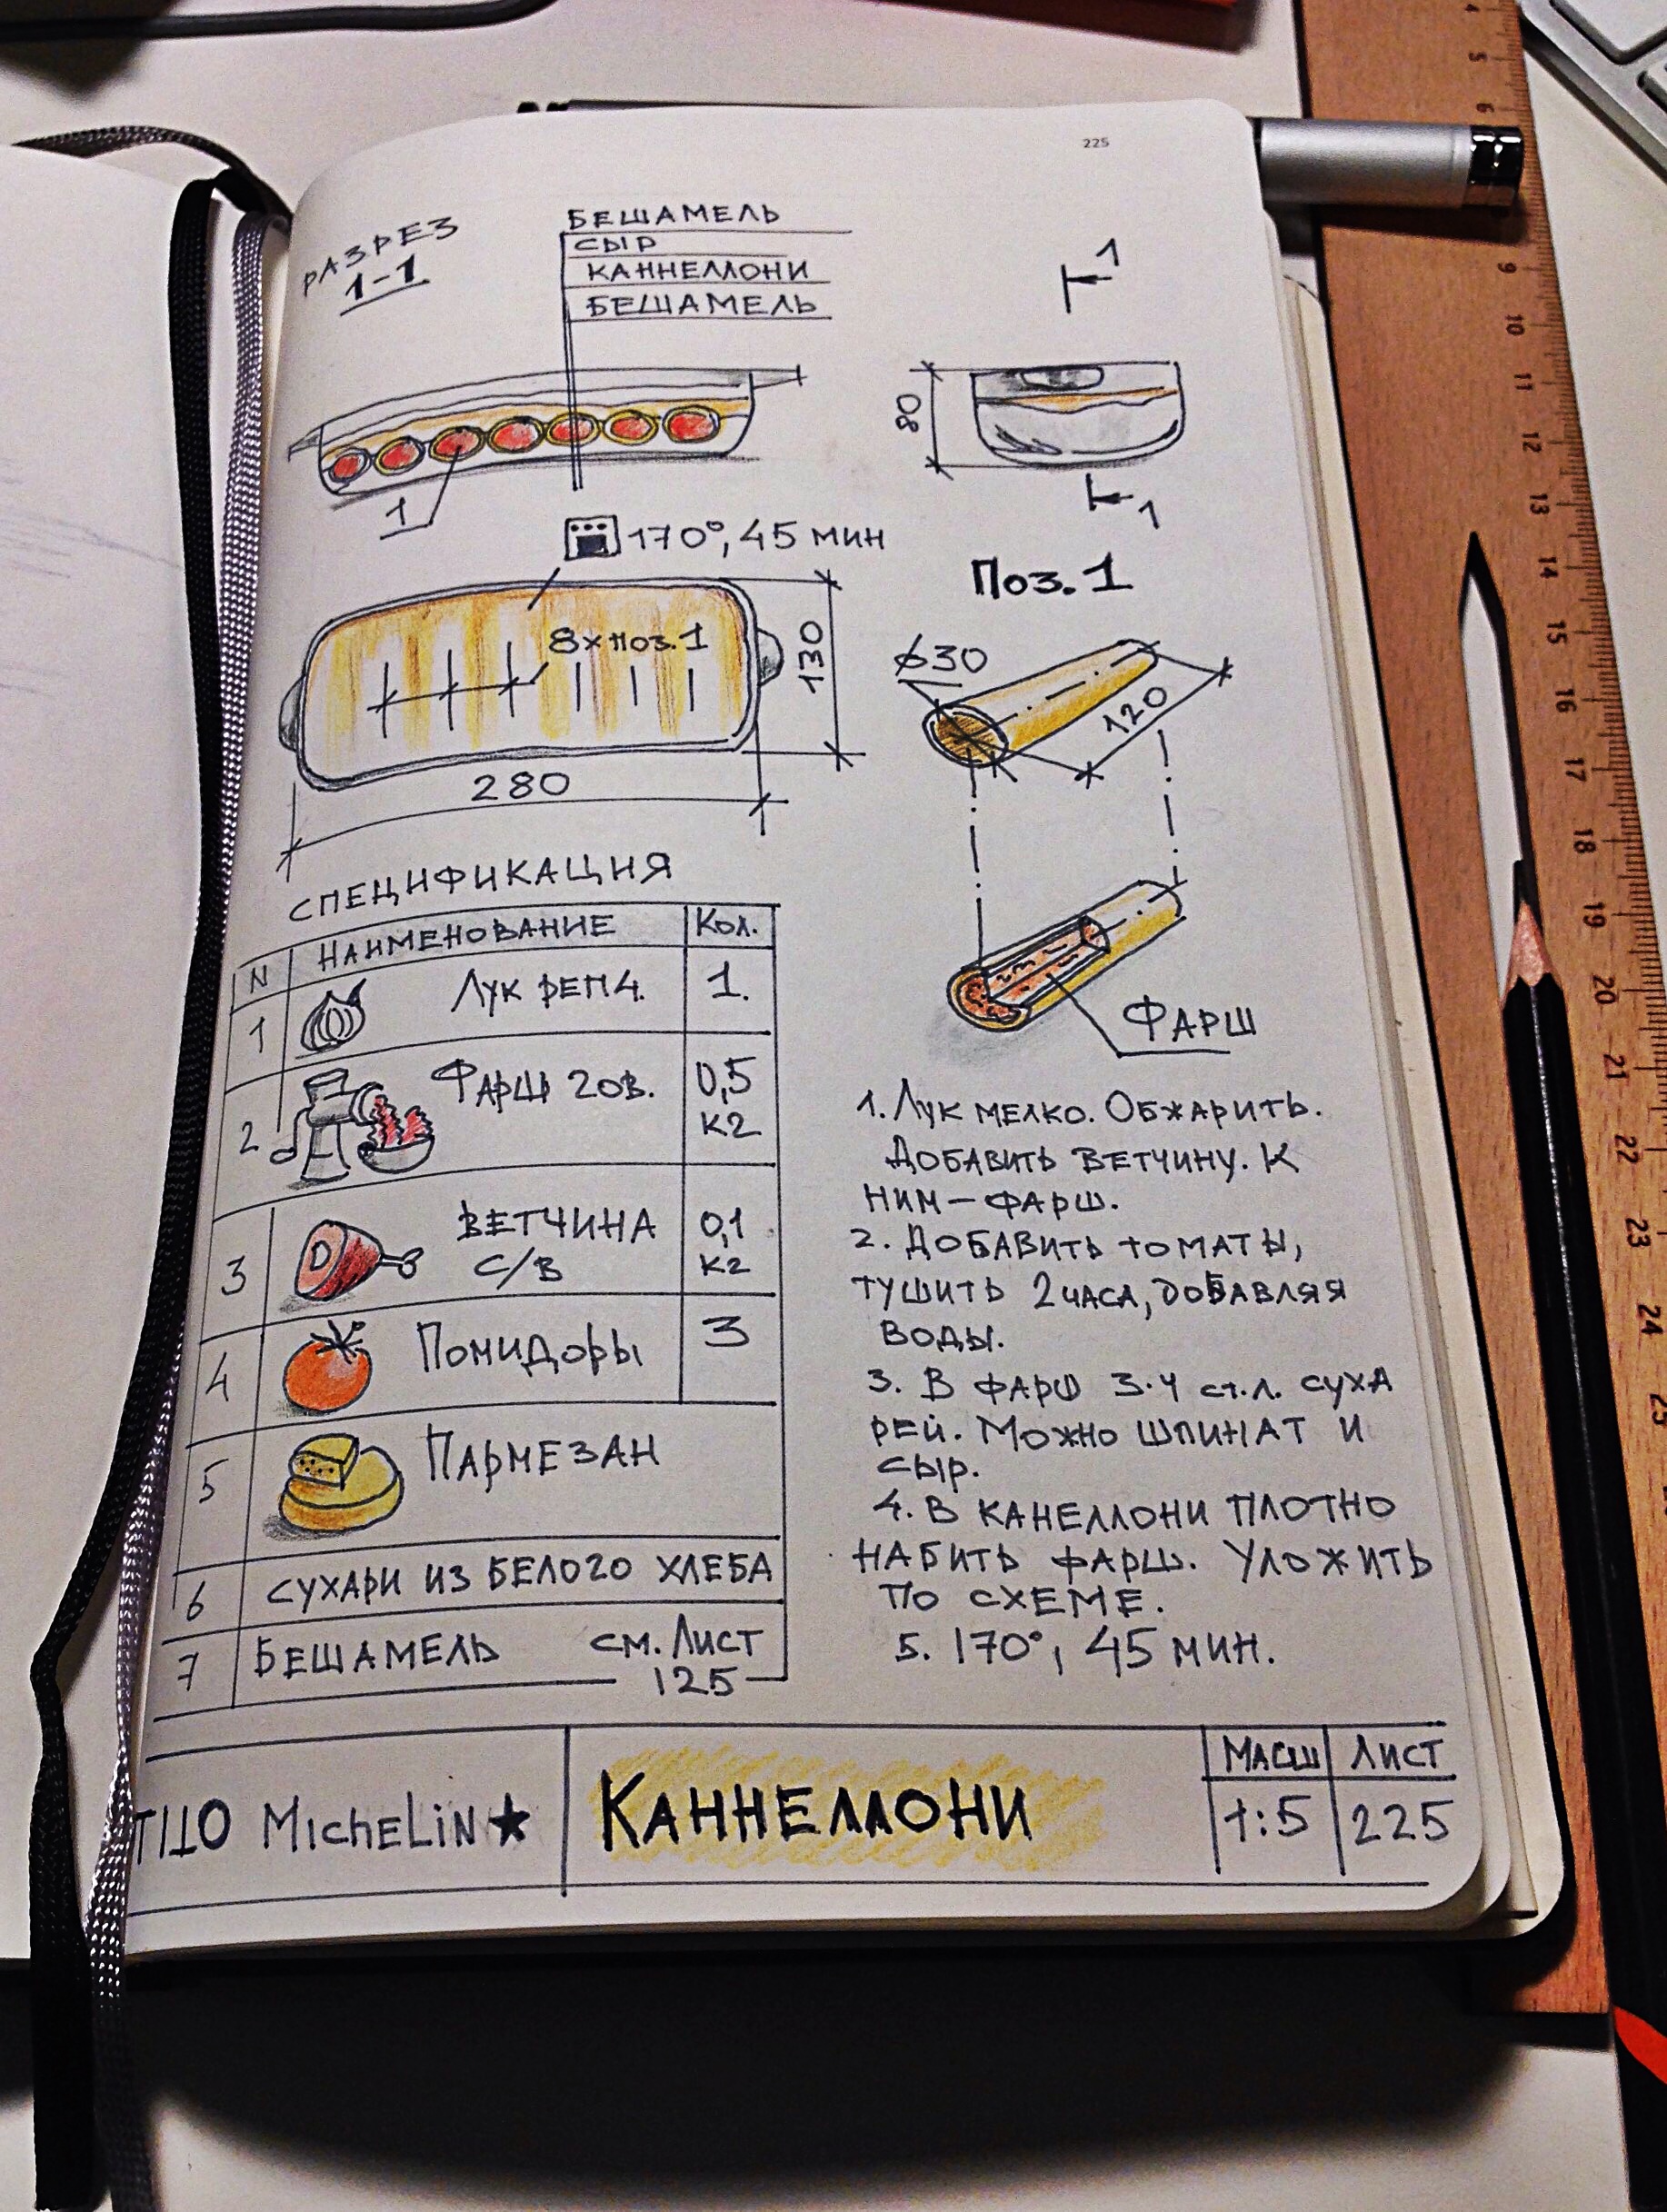 225
РАЗРЕЗ
1-1
БЕШАМЕЛЬ
СЫР
КАННЕЛЛОНИ
БЕШАМЕЛЬ
1
1
80
1
170°, 45 МИН
8×ПОЗ.1
130
280
ПОЗ.1
ϕ30
120
ФАРШ
СПЕЦИФИКАЦИЯ
N НАИМЕНОВАНИЕ КОЛ.
1 ЛУК РЕПЧ. 1.
2 ФАРШ ГОВ. 0,5
КГ
3 ВЕТЧИНА 0,1
С/В КГ
4 ПОМИДОРЫ 3
5 ПАРМЕЗАН
6 СУХАРИ ИЗ БЕЛОГО ХЛЕБА
7 БЕШАМЕЛЬ СМ. ЛИСТ
125
1. ЛУК МЕЛКО. ОБЖАРИТЬ.
ДОБАВИТЬ ВЕТЧИНУ. К
НИМ – ФАРШ.
2. ДОБАВИТЬ ТОМАТЫ,
ТУШИТЬ 2 ЧАСА, ДОБАВЛЯЯ
ВОДЫ.
3. В ФАРШ 3-4 СТ.Л. СУХА
РЕЙ. МОЖНО ШПИНАТ И
СЫР.
4. В КАНЕЛЛОНИ ПЛОТНО
НАБИТЬ ФАРШ. УЛОЖИТЬ
ПО СХЕМЕ.
5. 170°, 45 МИН.
MICHELIN★
КАННЕЛЛОНИ
МАСШ ЛИСТ
1:5 225
4
5
6
9
10
11
12
13
14
15
16
17
18
19
20
21
22
23
24
25